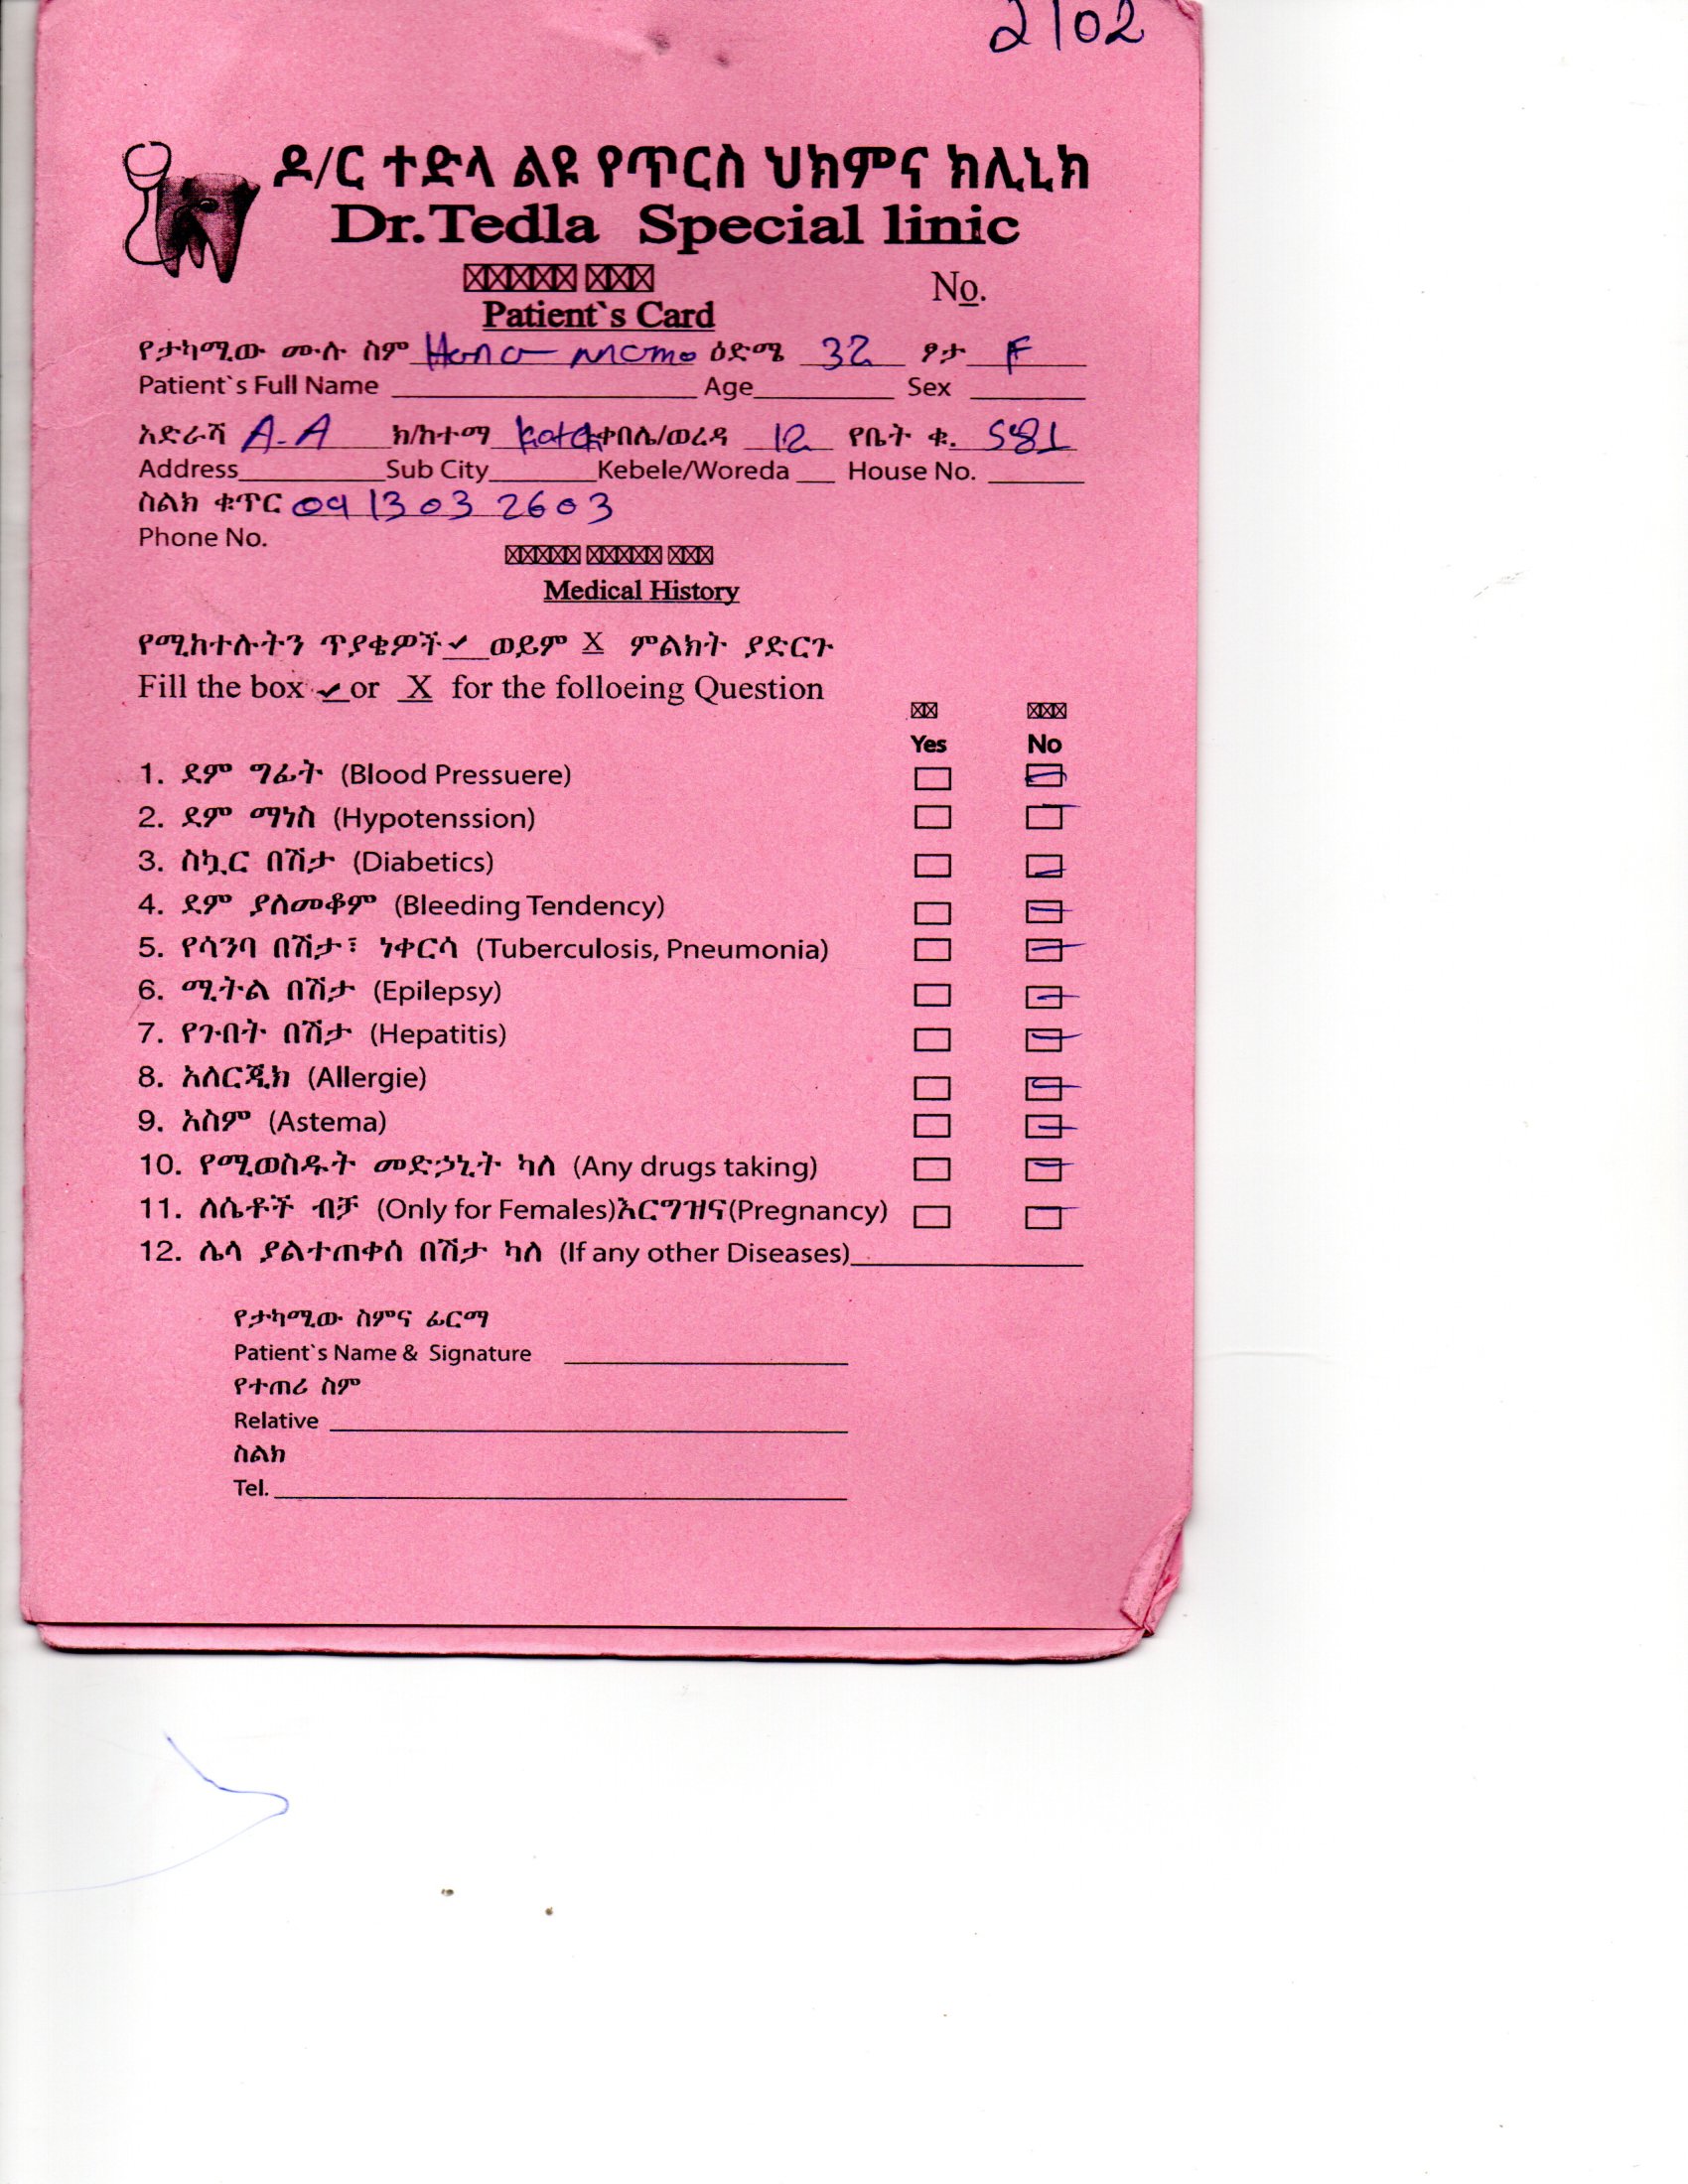 2102
ዶ/ር ተድላ ልዩ የጥርስ ህክምና ክሊኒክ
Dr.Tedla Special linic
No.
Patient`s Card
የታካሚው ሙሉ ስም Hana Mamo ዕድሜ 32 ፆታ F
Patient`s Full Name Age Sex
አድራሻ A.A ክ/ከተማ ቀበሌ/ወረዳ 12 የቤት ቁ. 581
Address Sub City Kebele/Woreda House No.
ስልክ ቁጥር 0913032603
Phone No.
Medical History
የሚከተሉትን ጥያቄዎች ✓ ወይም X ምልክት ያድርጉ
Fill the box ✓ or X for the folloeing Question
Yes No
1. ደም ግፊት (Blood Pressuere)
2. ደም ማነስ (Hypotenssion)
3. ስኳር በሽታ (Diabetics)
4. ደም ያለመቆም (Bleeding Tendency)
5. የሳንባ በሽታ፣ ነቀርሳ (Tuberculosis, Pneumonia)
6. ሚትል በሽታ (Epilepsy)
7. የጉበት በሽታ (Hepatitis)
8. አለርጂክ (Allergie)
9. አስም (Astema)
10. የሚወስዱት መድኃኒት ካለ (Any drugs taking)
11. ለሴቶች ብቻ (Only for Females)እርግዝና(Pregnancy)
12. ሌላ ያልተጠቀሰ በሽታ ካለ (If any other Diseases)
የታካሚው ስምና ፊርማ
Patient`s Name & Signature
የተጠሪ ስም
Relative
ስልክ
Tel.